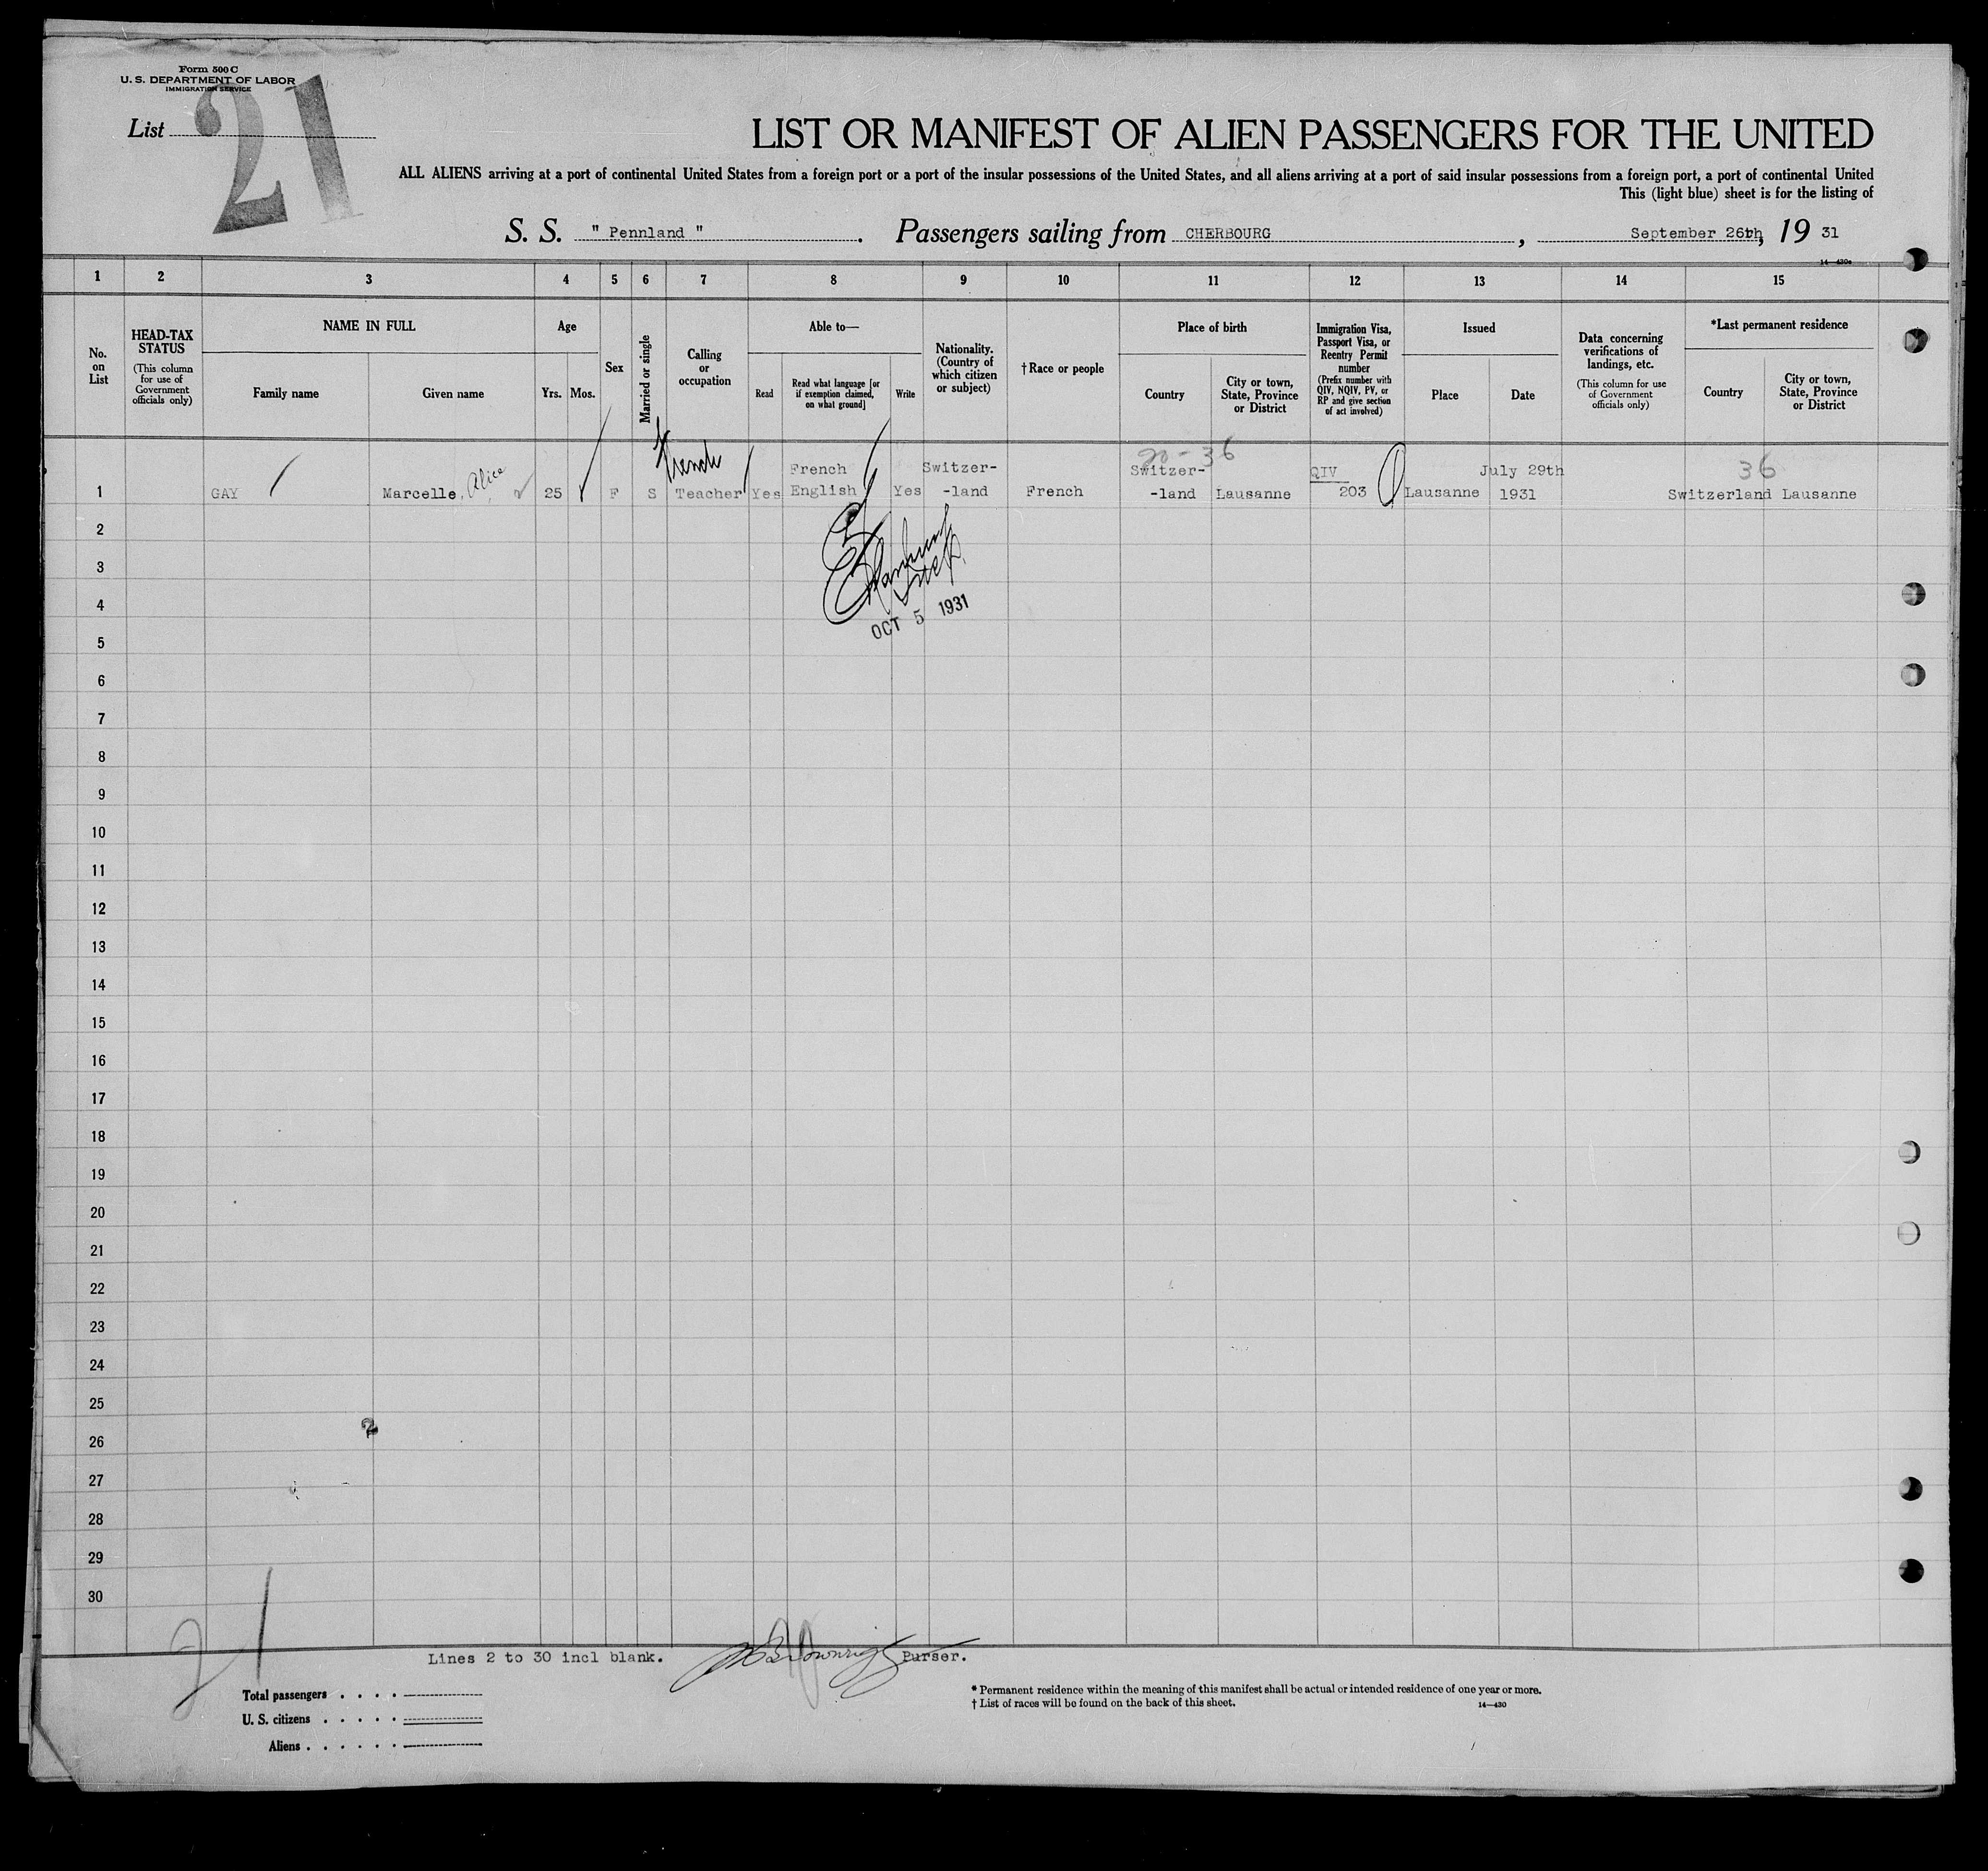 Form 500 C
U. S. DEPARTMENT OF LABOR
IMMIGRATION SERVICE
List 21
LIST OR MANIFEST OF ALIEN PASSENGERS FOR THE UNITED
ALL ALIENS arriving at a port of continental United States from a foreign port or a port of the insular possessions of the United States, and all aliens arriving at a port of said insular possessions from a foreign port, a port of continental United
This (light blue) sheet is for the listing of
S. S. " Pennland ". Passengers sailing from CHERBOURG, September 26th, 19 31
14—430a
1 2 3 4 5 6 7 8 9 10 11 12 13 14 15
No. on List
HEAD-TAX STATUS
(This column for use of Government officials only)
NAME IN FULL
Family name
Given name
Age
Yrs. Mos.
Sex
Married or single
Calling or occupation
Able to—
Read
Read what language [or if exemption claimed, on what ground]
Write
Nationality. (Country of which citizen or subject)
† Race or people
Place of birth
Country
City or town, State, Province or District
Immigration Visa, Passport Visa, or Reentry Permit number
(Prefix number with QIV, NQIV, PV, or RP and give section of act involved)
Issued
Place
Date
Data concerning verifications of landings, etc.
(This column for use of Government officials only)
*Last permanent residence
Country
City or town, State, Province or District
20-36 36
French French Switzer- Switzer- QIV July 29th
1 GAY Marcelle, Alice 25 F S Teacher Yes English Yes -land French -land Lausanne 203 Lausanne 1931 Switzerland Lausanne
2
3
4
OCT 5 1931
5
6
7
8
9
10
11
12
13
14
15
16
17
18
19
20
21
22
23
24
25
26
27
28
29
30
21
Lines 2 to 30 incl blank. Purser.
Total passengers . . . .
U. S. citizens . . . . .
Aliens . . . . . .
* Permanent residence within the meaning of this manifest shall be actual or intended residence of one year or more.
† List of races will be found on the back of this sheet. 14—430